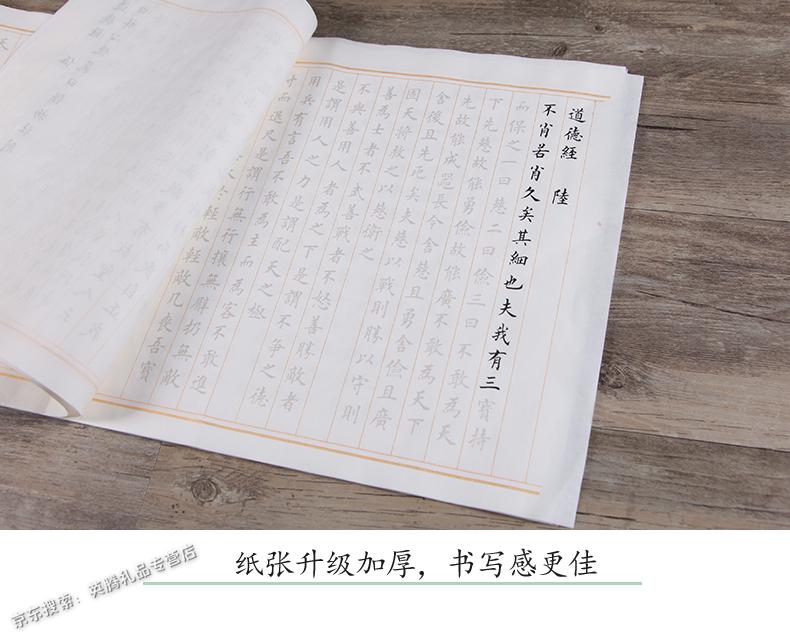 道德經 陸
不肖若肖久矣其細也夫我有三寶持
而保之一曰慈二曰儉三曰不敢為天
下先慈故能勇儉故能廣不敢為天下
先故能成器長今舍慈且勇舍儉且廣
舍後且先死矣夫慈以戰則勝以守則
固天將救之以慈衛之
善為士者不武善戰者不怒善勝敵者
不與善用人者為之下是謂不爭之德
是謂用人之力是謂配天之極
用兵有言吾不敢為主而為客不敢進
寸而退尺是謂行無行攘無臂扔無敵
輕敵輕敵几喪吾寶
纸张升级加厚，书写感更佳
京东搜索：英腾礼品专营店